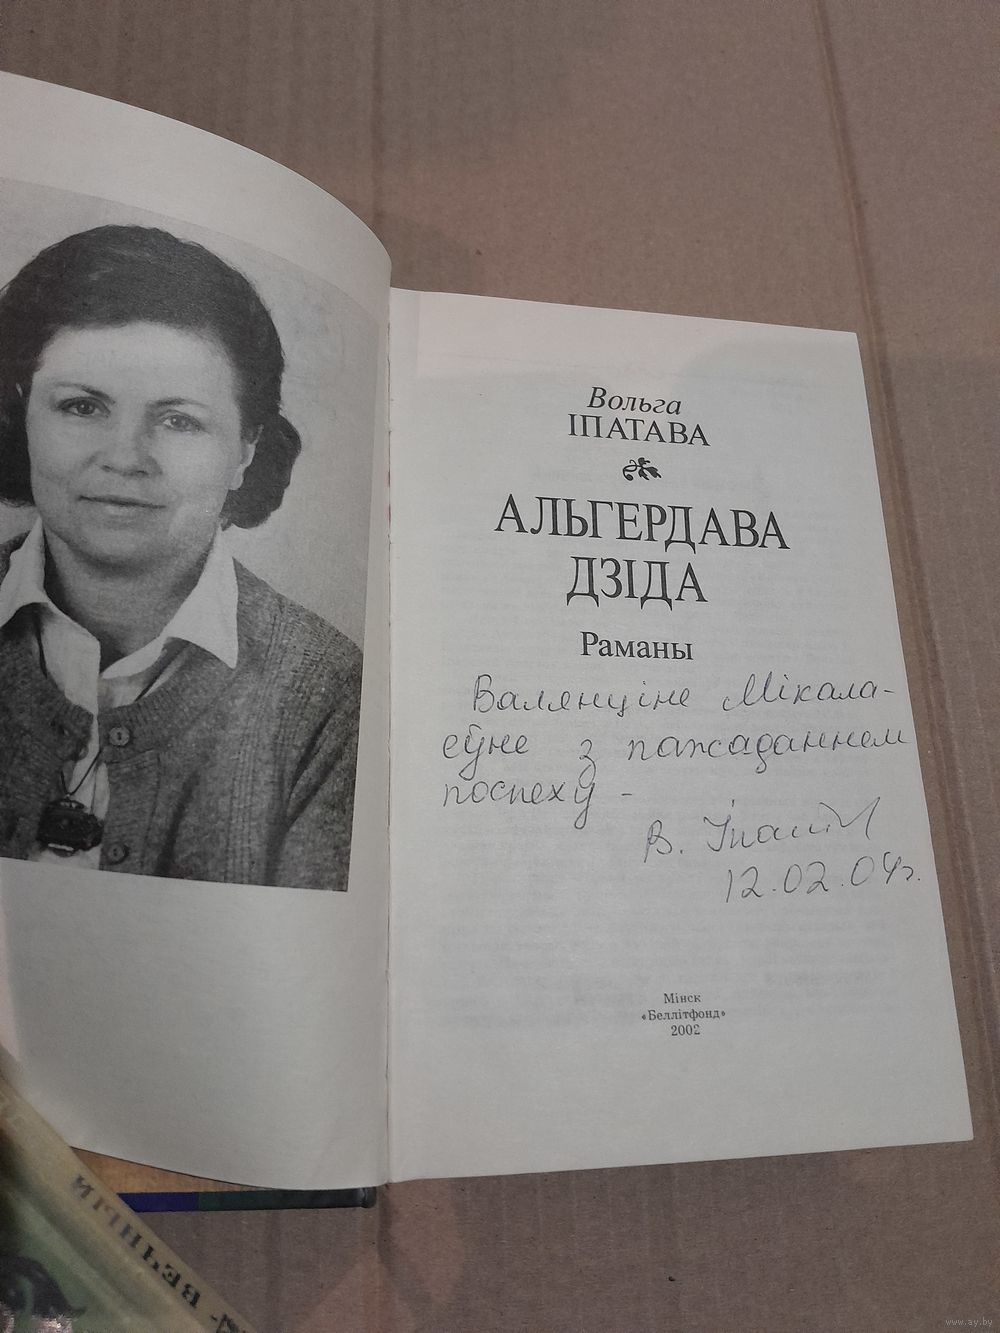 Вольга
ІПАТАВА
АЛЬГЕРДАВА
ДЗІДА
Раманы
Валянціне Мікала-
еўне з пажаданнем
поспеху -
В. Іпат
12.02.04г.
Мінск
«Беллітфонд»
2002
ВЕЧНЫЙ
www.ay.by